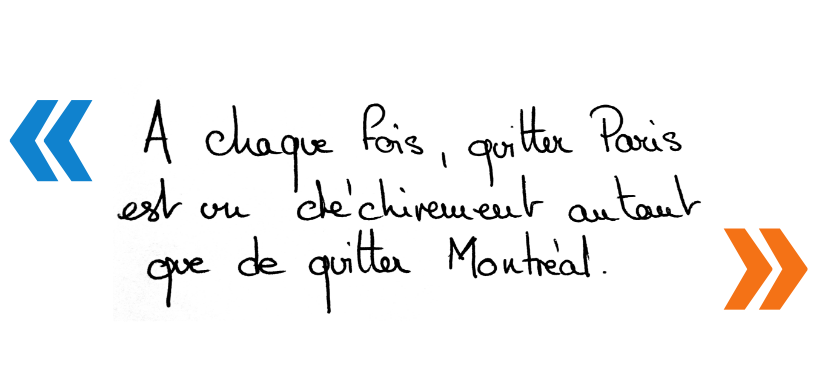 « A chaque fois, quitter Paris
est un déchirement autant
que de quitter Montréal. »